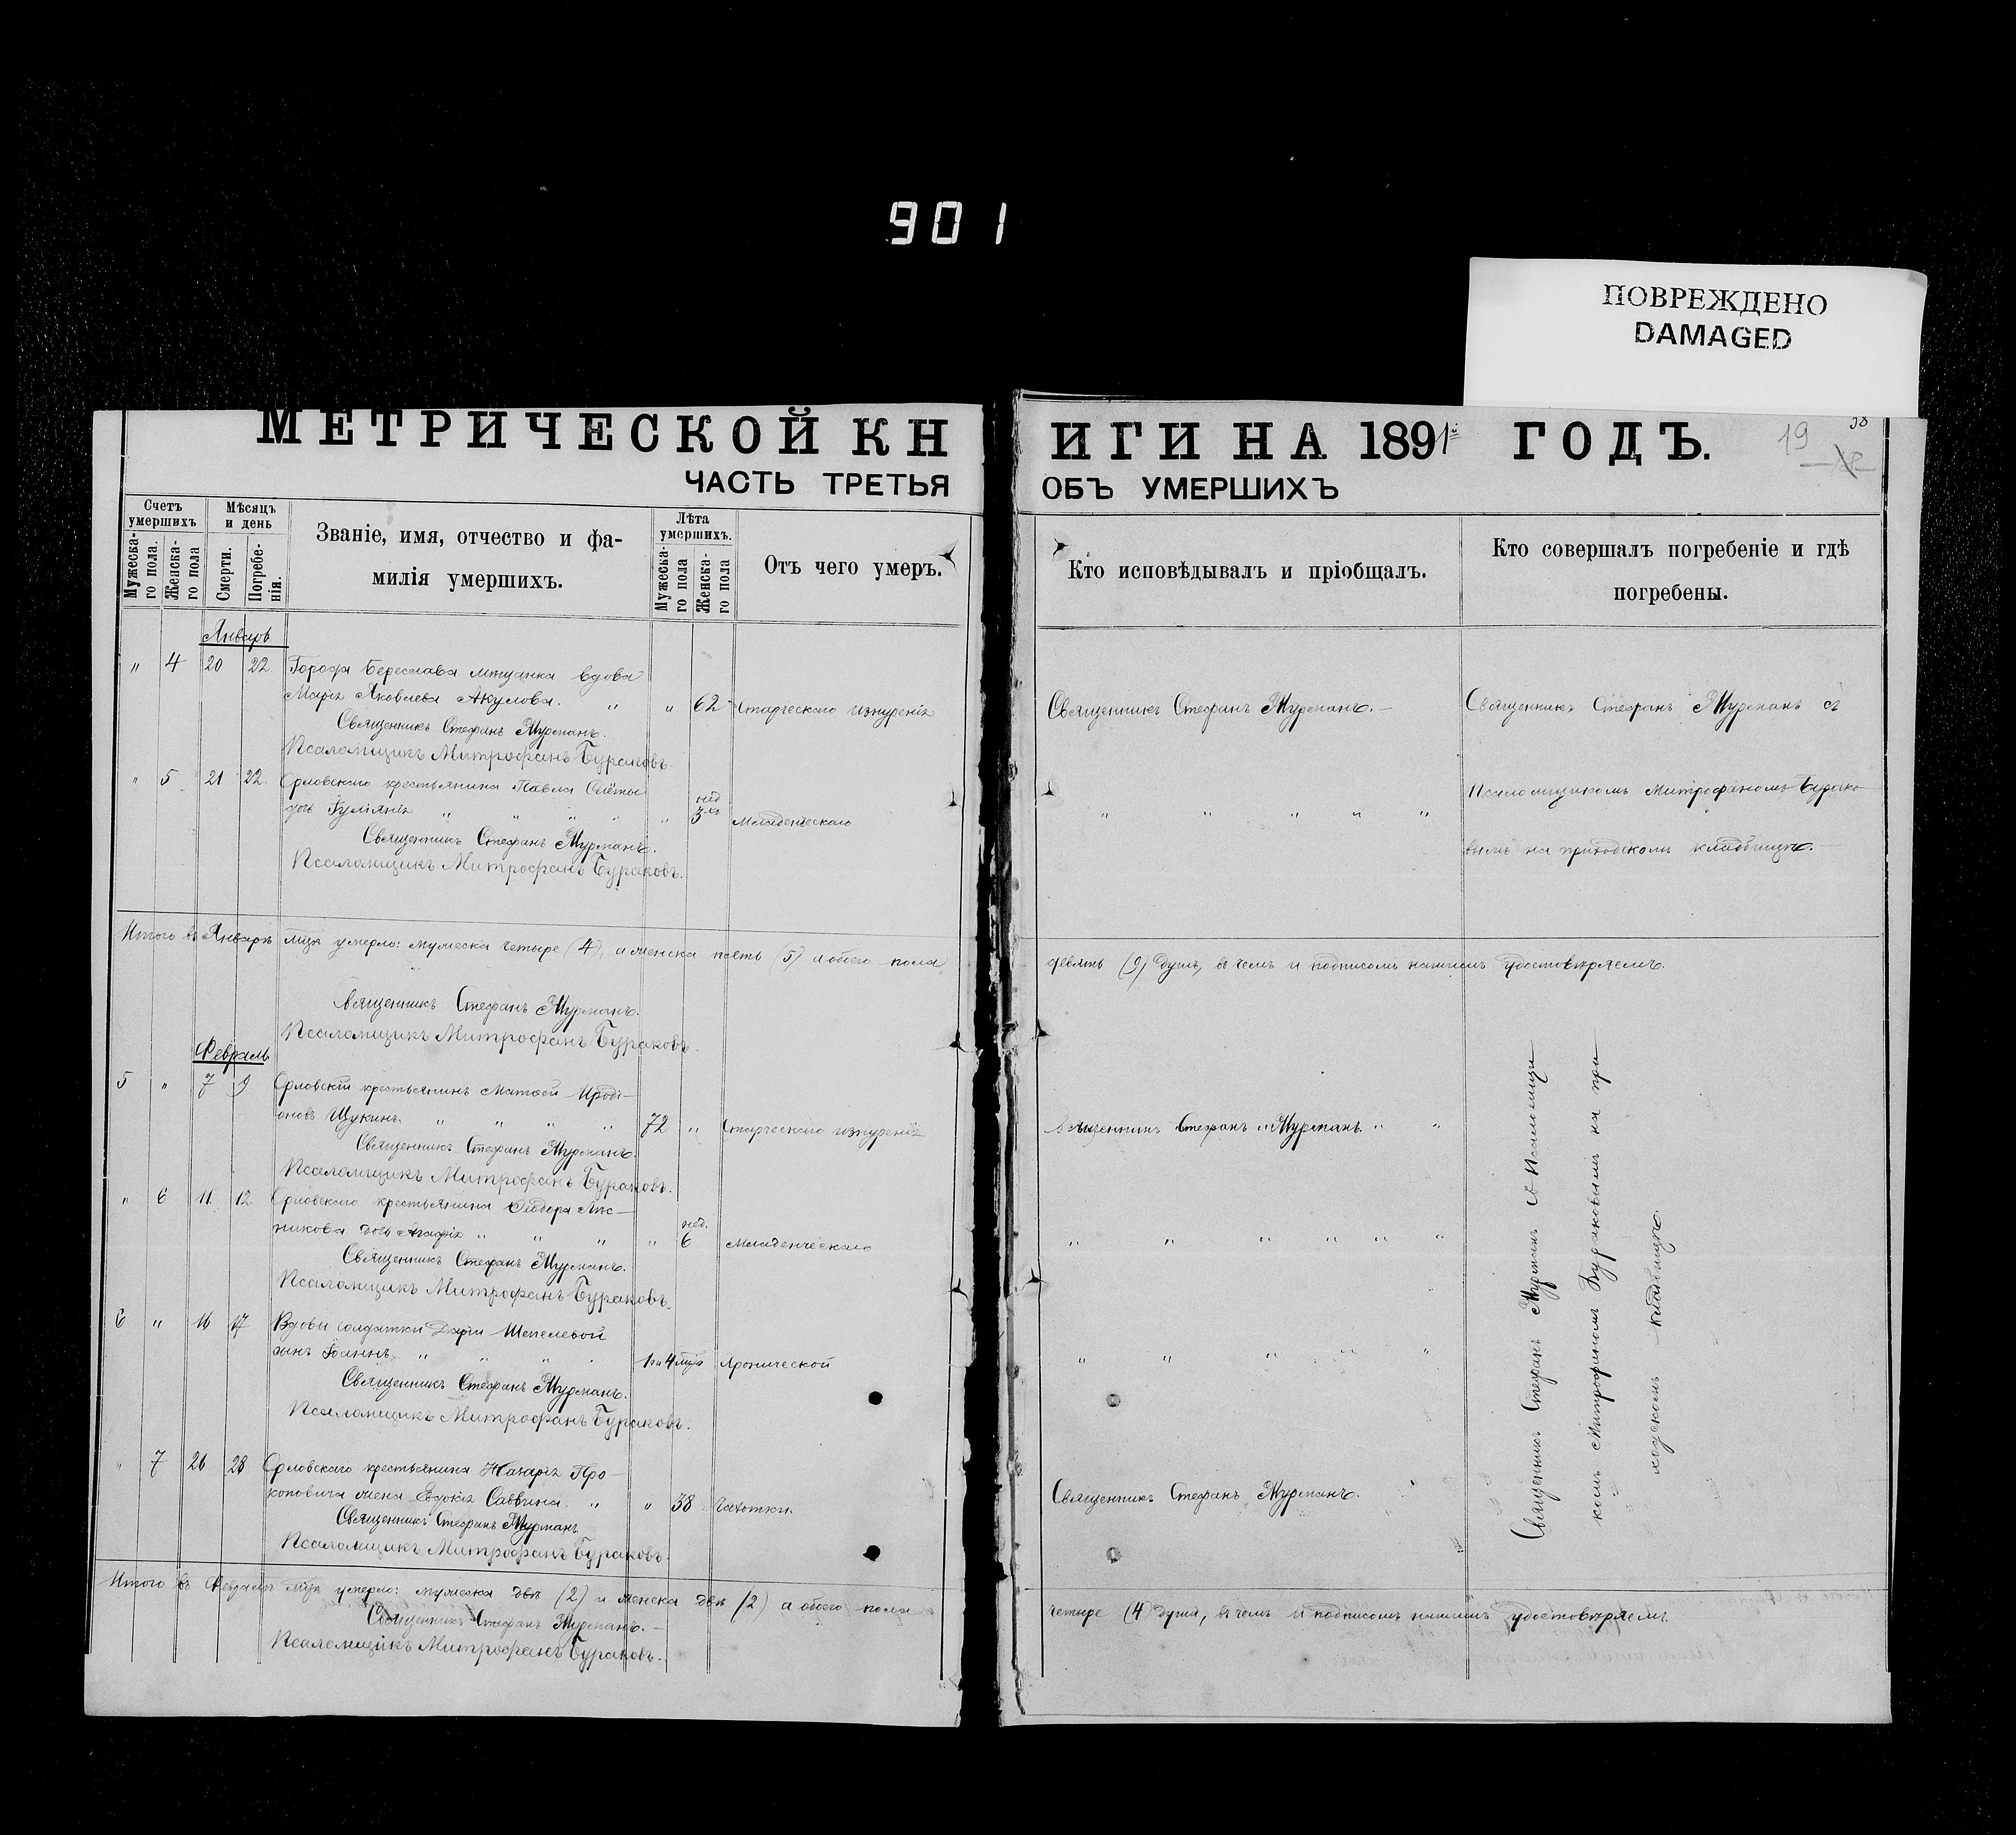 901
ПОВРЕЖДЕНО
DAMAGED
МЕТРИЧЕСКОЙ КН
ИГИ НА 1891й ГОДЪ.
19
38
ЧАСТЬ ТРЕТЬЯ
ОБЪ УМЕРШИХЪ
Счетъ умершихъ
Мужеска-го пола.
Женска-го пола
Мѣсяцъ и день
Смерти.
Погребе-нія.
Званіе, имя, отчество и фа-
милія умершихъ.
Лѣта умершихъ.
Мужеска-го пола
Женска-го пола
Отъ чего умеръ.
Кто исповѣдывалъ и пріобщалъ.
Кто совершалъ погребеніе и гдѣ
погребены.
Январь
" 4 20 22 Города Береслава мѣщанка вдова
Марія Яковлева Акулова. " " 62 Старческаго изнуренія Священникъ Стефанъ Мурманъ. Священникъ Стефанъ Мурманъ съ
Священникъ Стефанъ Мурманъ.
Псаломщикъ Митрофанъ Бураковъ
" 5 21 22 Орловскаго крестьянина Павла
дочь Іуліанія " " " " " 3 нед Младенческаго " " " " " Псаломщикомъ Митрофаномъ Бурако-
Священникъ Стефанъ Мурманъ.
Псаломщикъ Митрофанъ Бураковъ.
вымъ на приходскомъ кладбищѣ.
Итого въ Январѣ мцѣ умерло: мужеска четыре (4), а женска пять (5) а обоего пола
девять (9) душъ, въ чемъ и подписомъ нашимъ удостовѣряемъ.
Священникъ Стефанъ Мурманъ.
Псаломщикъ Митрофанъ Бураковъ.
Февраль
5 " 7 9 Орловскій крестьянинъ Матѳей Иродi-
оновъ Щукинъ. " " " " 72 " Старческаго изнуренія Священникъ Стефанъ Мурманъ. " "
Священникъ Стефанъ Мурманъ.
Псаломщикъ Митрофанъ Бураковъ.
" 6 11 12 Орловскаго крестьянина Ѳеодора Лѣс-
никова дочь Агафія " " " " 6 нед. Младенческаго " " " " " "
Священникъ Стефанъ Мурманъ.
Псаломщикъ Митрофанъ Бураковъ.
6 " 16 17 Вдовы солдатки Даріи Шепелевой
сынъ Іоаннъ. " " " 1 4 мца Хронической " " " " "
Священникъ Стефанъ Мурманъ.
Псаломщикъ Митрофанъ Бураковъ.
" 7 26 28 Орловскаго крестьянина Назарія Про-
коповича жена Евдокія Саввина. " " 38 Чахотки. Священникъ Стефанъ Мурманъ. "
Священникъ Стефанъ Мурманъ
Псаломщикъ Митрофанъ Бураковъ.
Священникъ Стефанъ Мурманъ съ Псаломщи
комъ Митрофаномъ Бураковымъ на при
ходскомъ кладбищѣ.
Итого въ Февралѣ мцѣ умерло: мужеска двѣ (2) и женска двѣ (2) а обоего пола
четыре (4) души, въ чемъ и подписомъ нашимъ удостовѣряемъ.
Священникъ Стефанъ Мурманъ.
Псаломщикъ Митрофанъ Бураковъ.